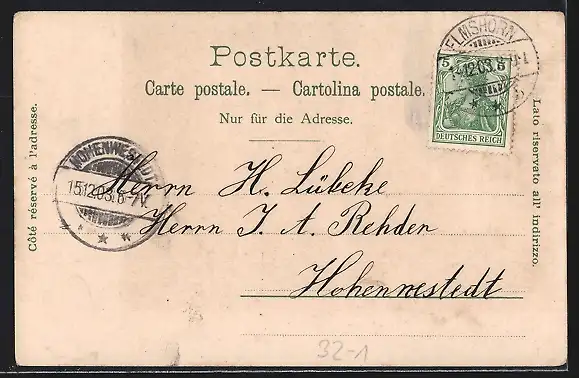 Postkarte.
Carte postale. — Cartolina postale.
Nur für die Adresse.
Côté réservé à l'adresse.
Lato riservato all' indirizzo.
ELMSHORN
5
DEUTSCHES REICH
HOHENWESTEDT
15.12.03.6-7V.
Herrn H. Lübcke
Herrn J. A. Rehder
Hohenwestedt
32-1